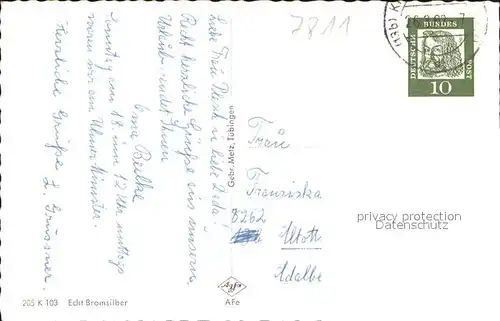 7811
(13b)
DEUTSCHE
BUNDES
POST
10
Liebe Frau Resch u. liebe Heda!
Recht herzliche Grüsse aus unserem
Urlaub sendet Ihnen
Oma Betke
Sonntag um 18 um 12 Uhr mittags
waren wir am Ulmer Münster.
Herzliche Grüße L. Grüssner.
Gebr. Metz, Tübingen
Frau
Franziska
8262
Altött
Adalbe
privacy protection
Datenschutz
Agfa
AFe
205 K 103 Echt Bromsilber